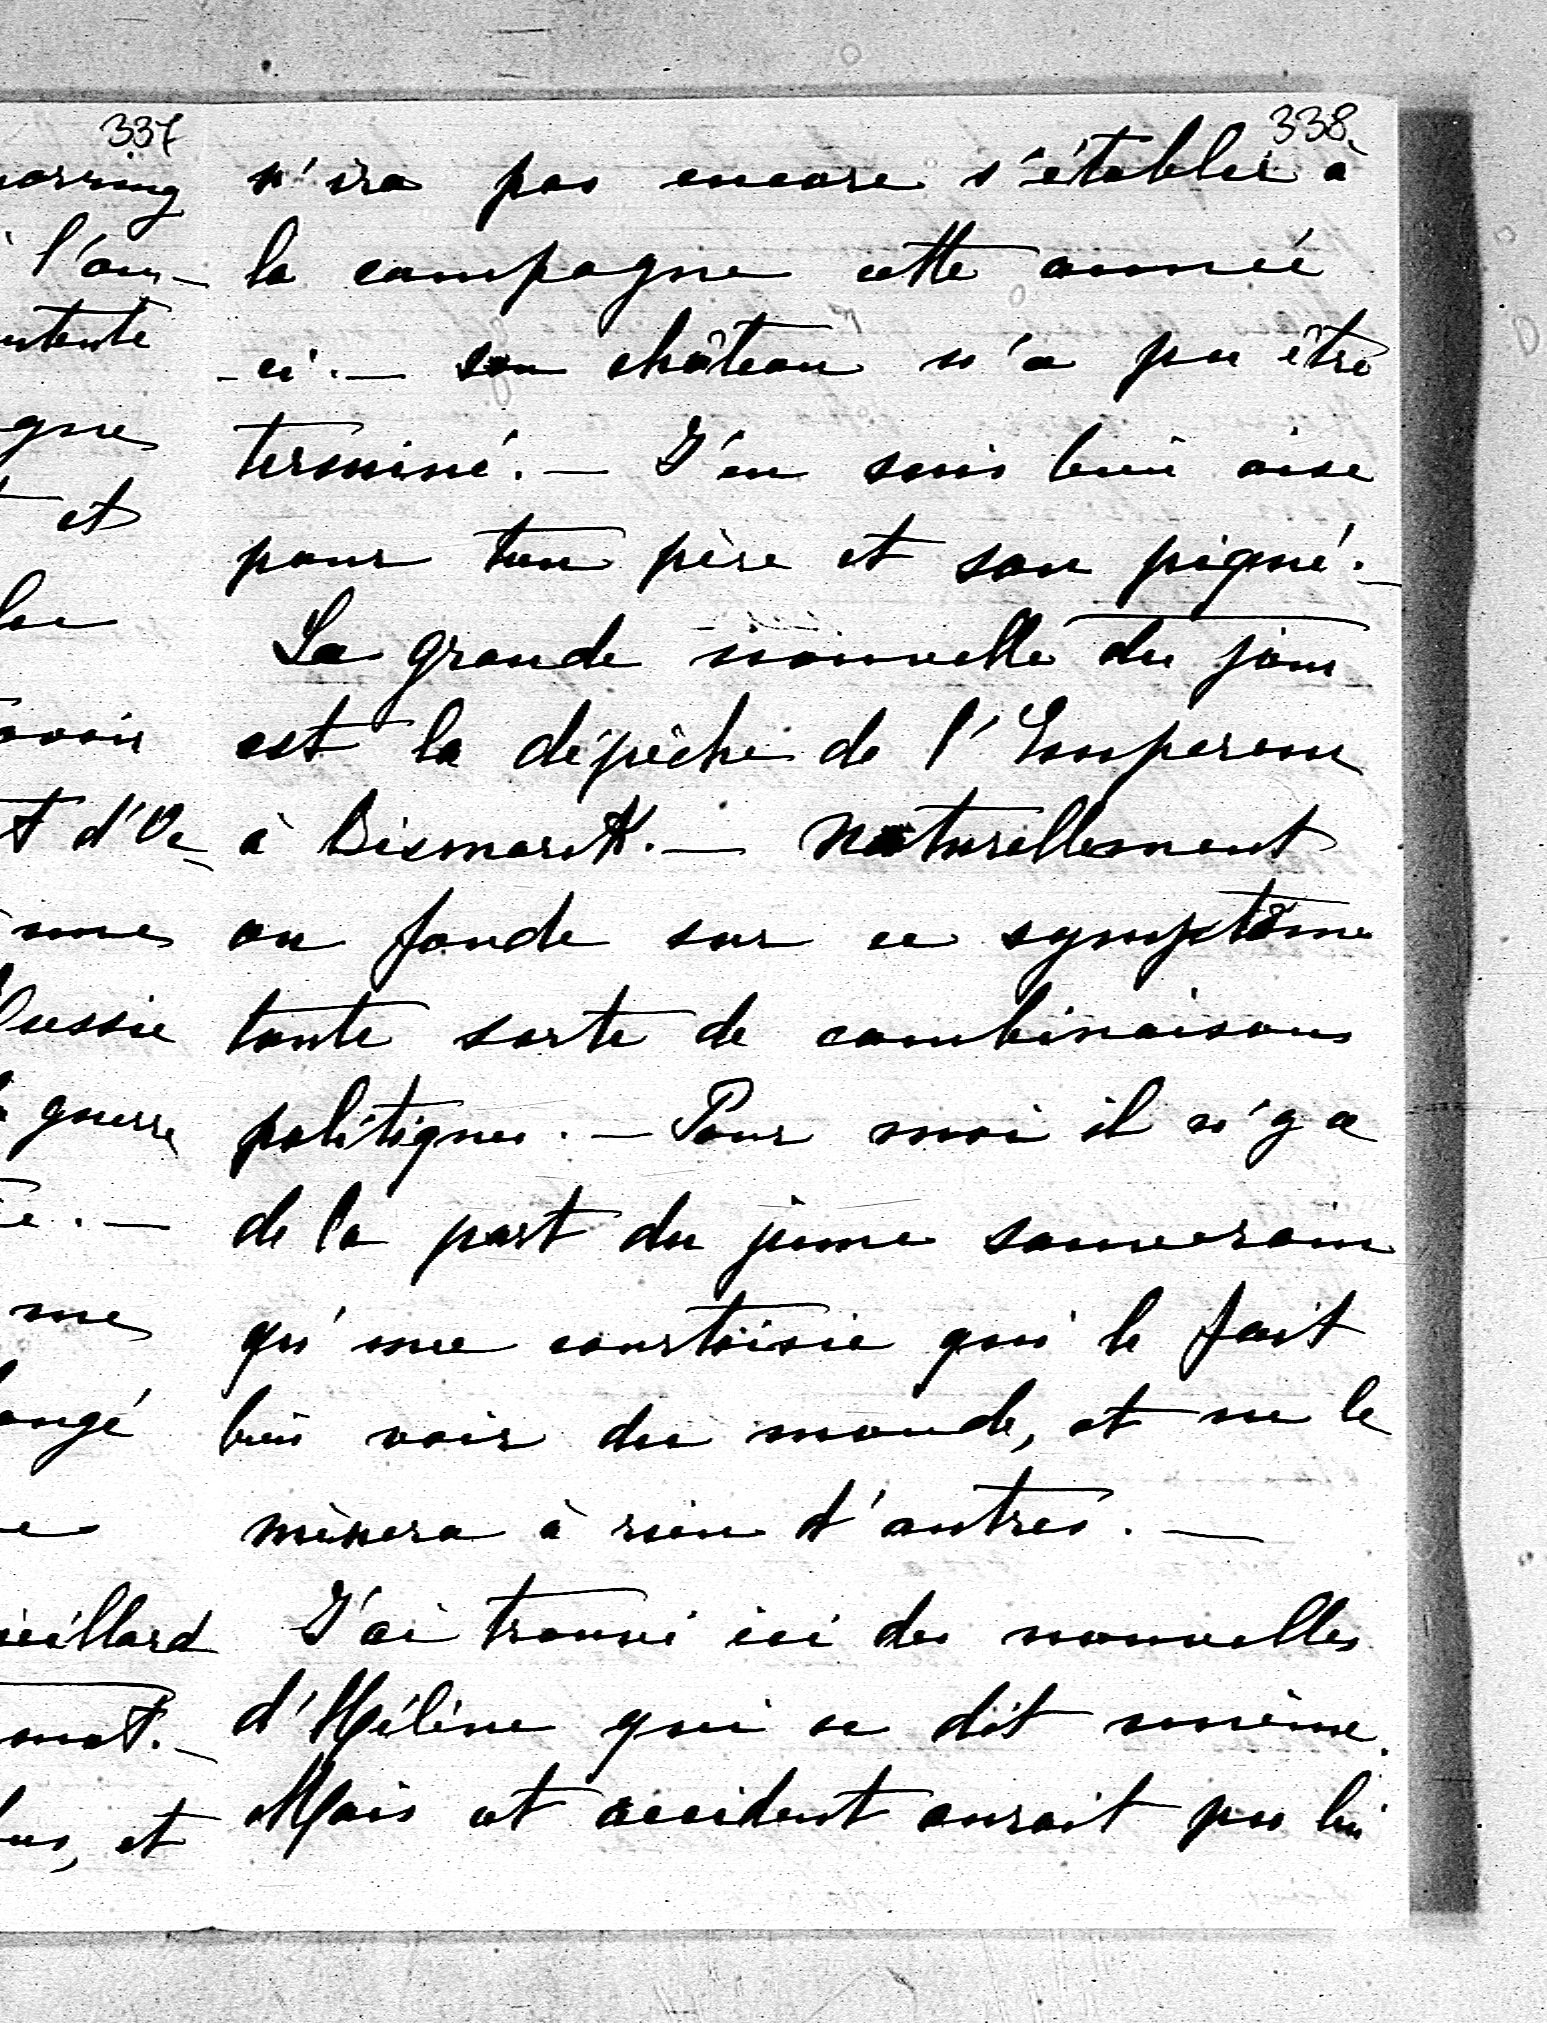 337
orring
à l'om-
ntente
gne
et
la
avoir
t d'Oe-
une
Russie
guerre
me
ongé
vieillard
et
338
n'ira pas encore s'établir à
la campagne cette année
-ci. — son château n'a pu être
terminé. — J'en suis bien aise
pour ton père et son pigné. —
La grande nouvelle du jour
est la dépêche de l'Empereur
à Bismarck. — Naturellement
on fonde sur ce symptôme
toute sorte de combinaisons
politiques. — Pour moi il n'y a
de la part du jeune souverain
qu'une courtoisie qui le fait
bien voir du monde, et ne le
mènera à rien d'autres. —
J'ai trouvé ici des nouvelles
d'Hélène qui se dit mieux.
Mais cet accident aurait pu lui